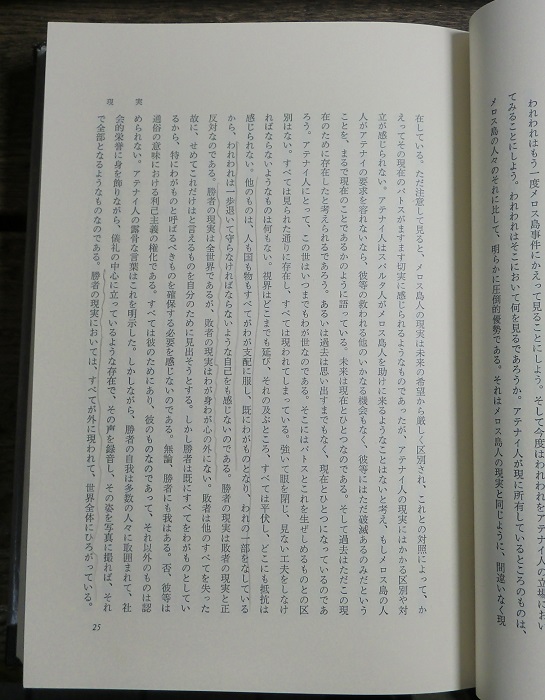 われわれはもう一度メロス島事件にかえって見ることにしよう。そして今度はわれわれをアテナイ人の立場におい
てみることにしよう。われわれはそこにおいて何を見るであろうか。アテナイ人が現に所有しているところのものは、
メロス島の人々のそれに比して、明らかに圧倒的優勢である。それはメロス島人の現実と同じように、間違いなく現
在している。ただ注意して見ると、メロス島人の現実は未来の希望から厳しく区別され、これとの対照によって、か
えってその現在のパトスがますます切実に感じられるようなものであったが、アテナイ人の現実にはかかる区別や対
立が感じられない。アテナイ人はスパルタ人がメロス島人を助けに来るようなことはないと考え、もしメロス島の人
人がアテナイの要求を容れないなら、彼等の救われる他のいかなる機会もなく、彼等にはただ破滅あるのみだという
ことを、まるで現在のことであるかのように語っている。未来は現在とひとつなのである。そして過去はただこの現
在のために存在したと考えられるであろう。あるいは過去は思い出すまでもなく、現在とひとつになっているのであ
ろう。アテナイ人にとって、この世はいつまでもわが世なのである。そこにはパトスとこれを生ぜしめるものとの区
別はない。すべては見られた通りに存在し、すべては現われてしまっている。強いて眼を閉じ、見ない工夫をしなけ
ればならないようなものは何もない。視界はどこまでも延び、その及ぶところ、すべては平伏し、どこにも抵抗は
感じられない。他のものは、人も国も物もすべてがわが支配に服し、既にわがものとなり、われの一部をなしている
から、われわれは一歩退いて守らなければならないような自己をも感じないのである。勝者の現実は敗者の現実と正
反対なのである。勝者の現実は全世界であるが、敗者の現実はわが身わが心の外にない。敗者は他のすべてを失った
故に、せめてこれだけはと言えるものを自分のために見出そうとする。しかし勝者は既にすべてをわがものとしてい
るから、特にわがものと呼ばるべきものを確保する必要を感じないのである。無論、勝者にも我はある。否、彼等は
通俗の意味における利己主義の権化である。すべては彼のためにあり、彼のものなのであって、それ以外のものは認
められない。アテナイ人の露骨な言葉はこれを明示した。しかしながら、勝者の自我は多数の人々に取囲まれて、社
会的栄誉に身を飾りながら、儀礼の中心に立っているような存在で、その声を録音し、その姿を写真に撮れば、それ
で全部となるようなものなのである。勝者の現実においては、すべてが外に現われて、世界全体にひろがっている。
現実
25